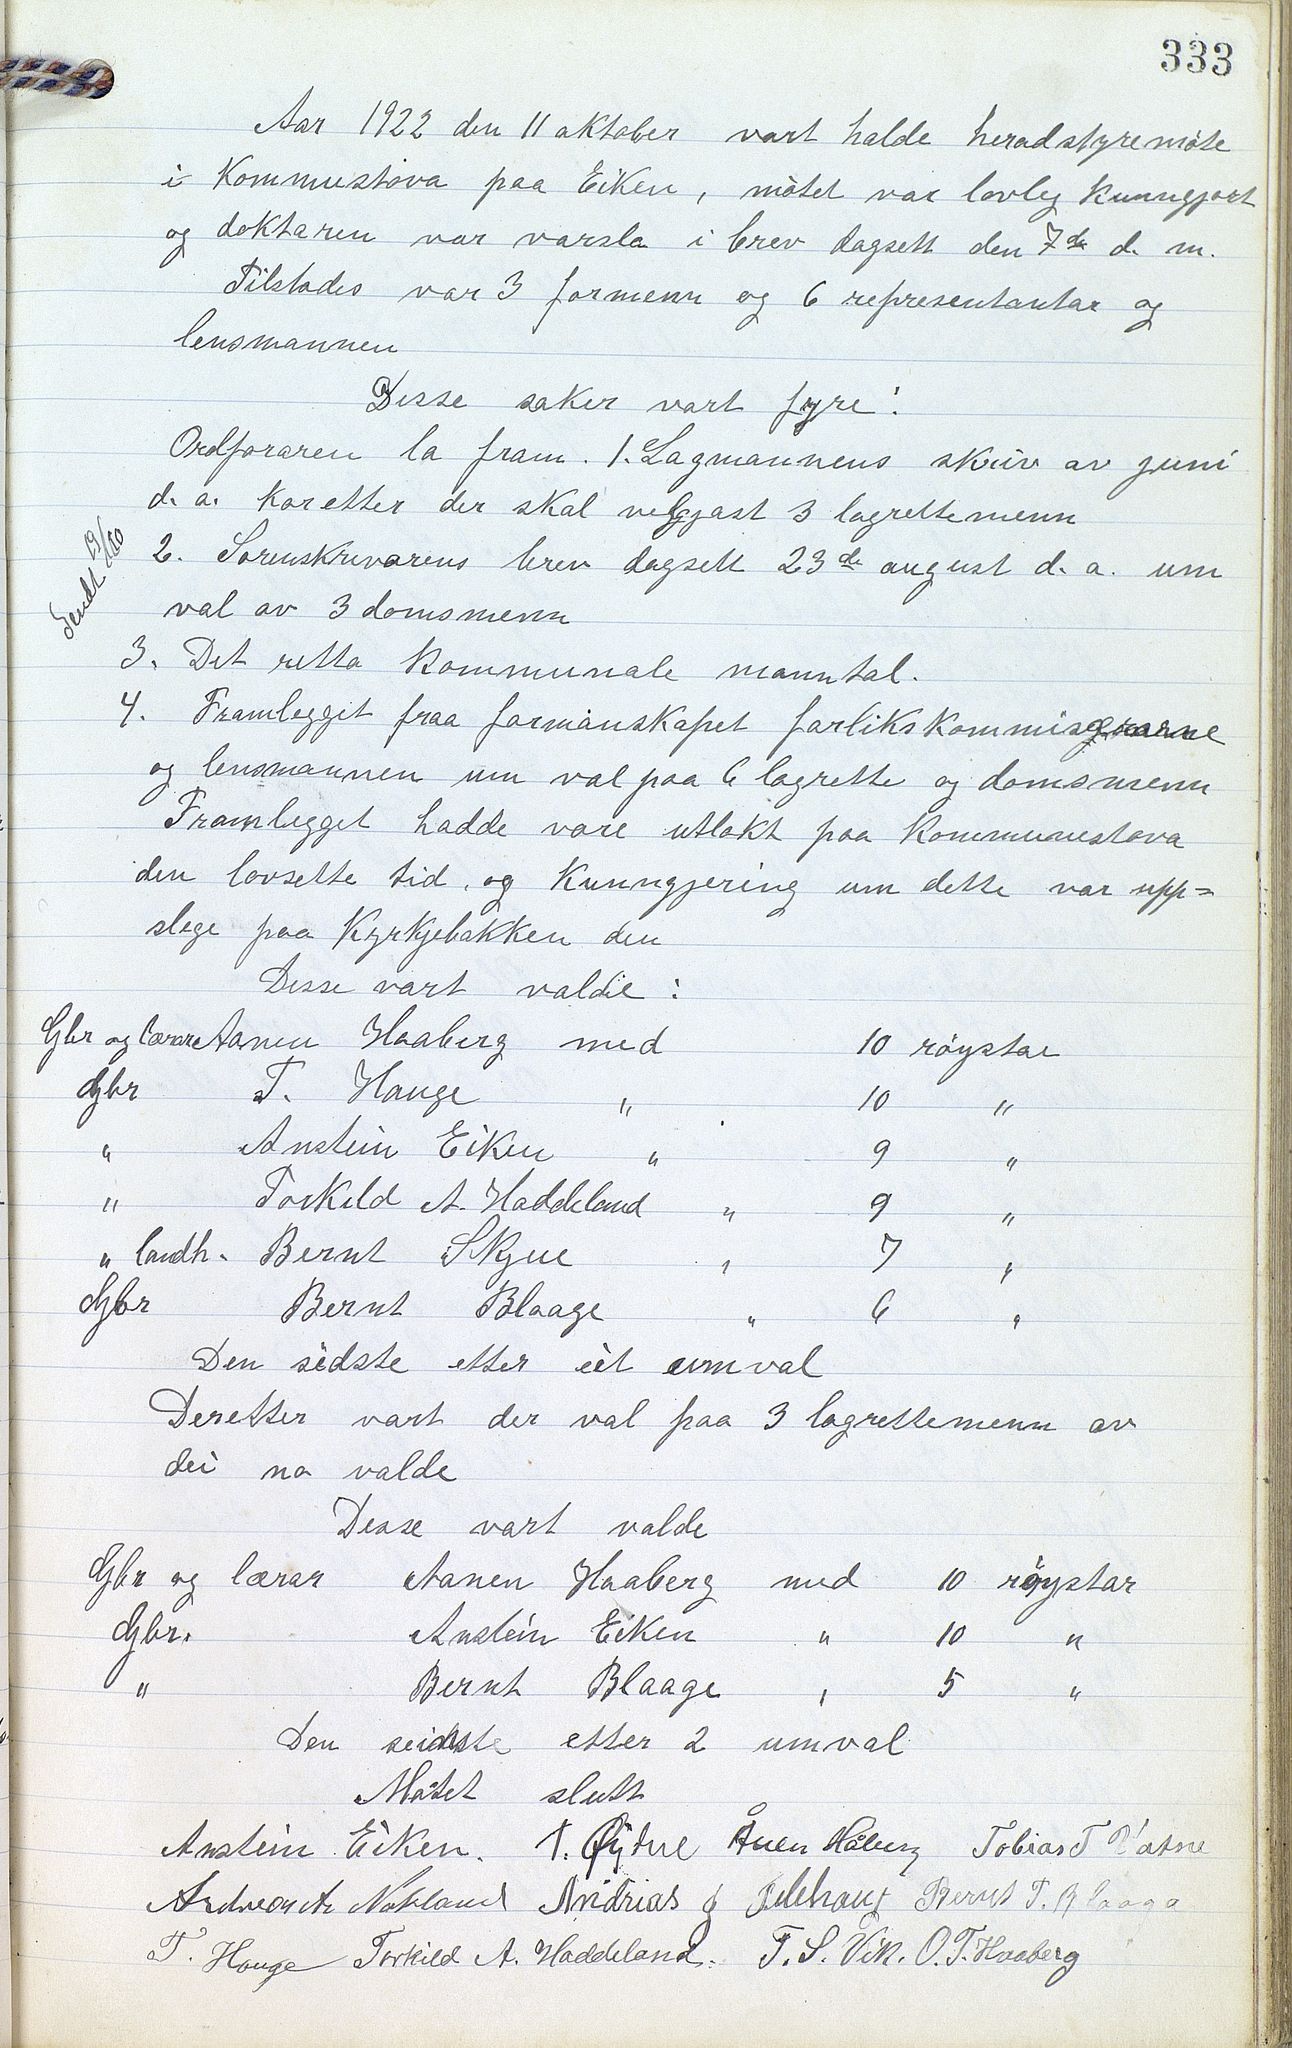 333
Aar 1922 den 11 oktober vart halde heradstyremöte
i Kommustova paa Eiken, mötet var lovleg kunngjort
og doktaren var varsla i brev dagsett den 7de d. m.
Tilstades var 3 formenn og 6 representantar og
lensmannen
Disse saker vart fyre:
Ordföraren la fram. 1. Lagmannens skriv av juni
d. a. koretter der skal veljast 3 lagrettemenn
Sendt 19/10
2. Sorenskrivarens brev dagsett 23de august d. a. um
val av 3 domsmenn
3. Det retta kommunale manntal.
4. Framlegget fraa formanskapet forlikskommisærarne
og lensmannen um val paa 6 lagrette og domsmenn
Framlegget hadde vore utlakt paa Kommunestova
den lovsette tid, og kunngjering um dette var upp=
slege paa Kyrkjebakken den
Desse vart valde:
Gbr og lærar Aanen Haaberg med 10 röystar
Gbr T. Hauge " 10 "
" Anstein Eiken " 9 "
" Torkild A. Haddeland " 9 "
" landh. Bernt Skjue " 7 "
Gbr Bernt Blaage " 6 "
Den sidste etter eit umval
Deretter vart der val paa 3 lagrettemenn av
dei no valde
Desse vart valde
Gbr og lærar Aanen Haaberg med 10 röystar
Gbr. Anstein Eiken " 10 "
" Bernt Blaage " 5 "
Den seidste etter 2 umval
Mötet slutt
Anstein Eiken. T. Öydne Ånen Håberg Tobias T Vatne
Andreas A Nökland Andrias J Bernt T. Blaaga
T. Hauge Torkild A. Haddeland. T. S. Vik. O. T. Haaberg